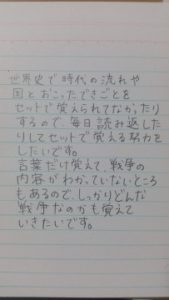 世界史で時代の流れや
国とおこったできごとを
セットで覚えられてなかったり
するので、毎日読み返した
りしてセットで覚える努力を
したいです。
言葉だけ覚えて、戦争の
内容がわかっていないところ
もあるので、しっかりどんな
戦争なのかも覚えて
いきたいです。